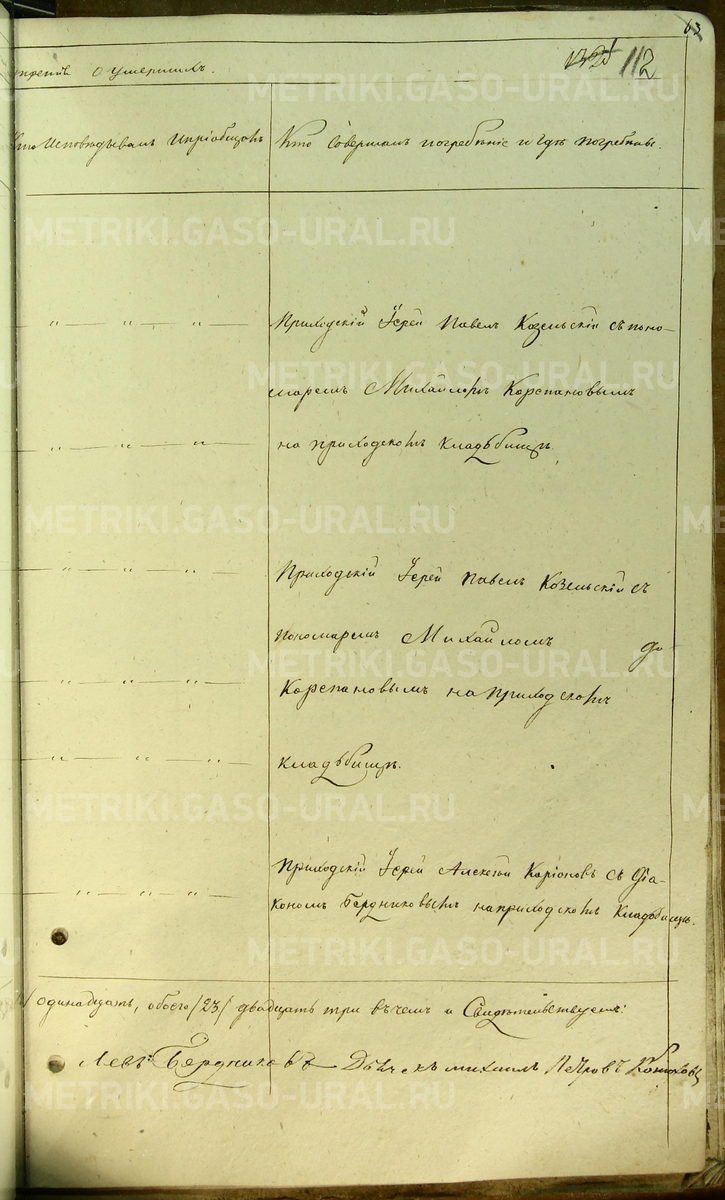 63
третiя О умершихъ.
1321 112
Кто Исповѣдывалъ И прiобщалъ
Кто Совершалъ погребѣнiе и гдѣ погребены.
" — " — " —
Приходскiй Iерей Павелъ Козельскiй съ поно-
маремъ Михайломъ Корепановымъ
" — " — " —
на приходскомъ Кладъбищѣ.
" — " — " —
Приходскiй Iерей Павелъ Козельскiй съ
Пономаремъ Михайломъ
" — " — " —
Корепановымъ на приходскомъ
" — " — " —
кладъбищѣ.
" — " — " —
Приходскiй Iерей Алексѣй Карiоновъ съ Дiа-
кономъ Бердниковымъ на приходскомъ Кладъбищѣ.
одинадцать, обоего /23/ двадцать три въ чемъ и Свидѣтельствуемъ:
Левъ Бердниковъ Дьячекъ михаилъ Петровъ
METRIKI.GASO-URAL.RU